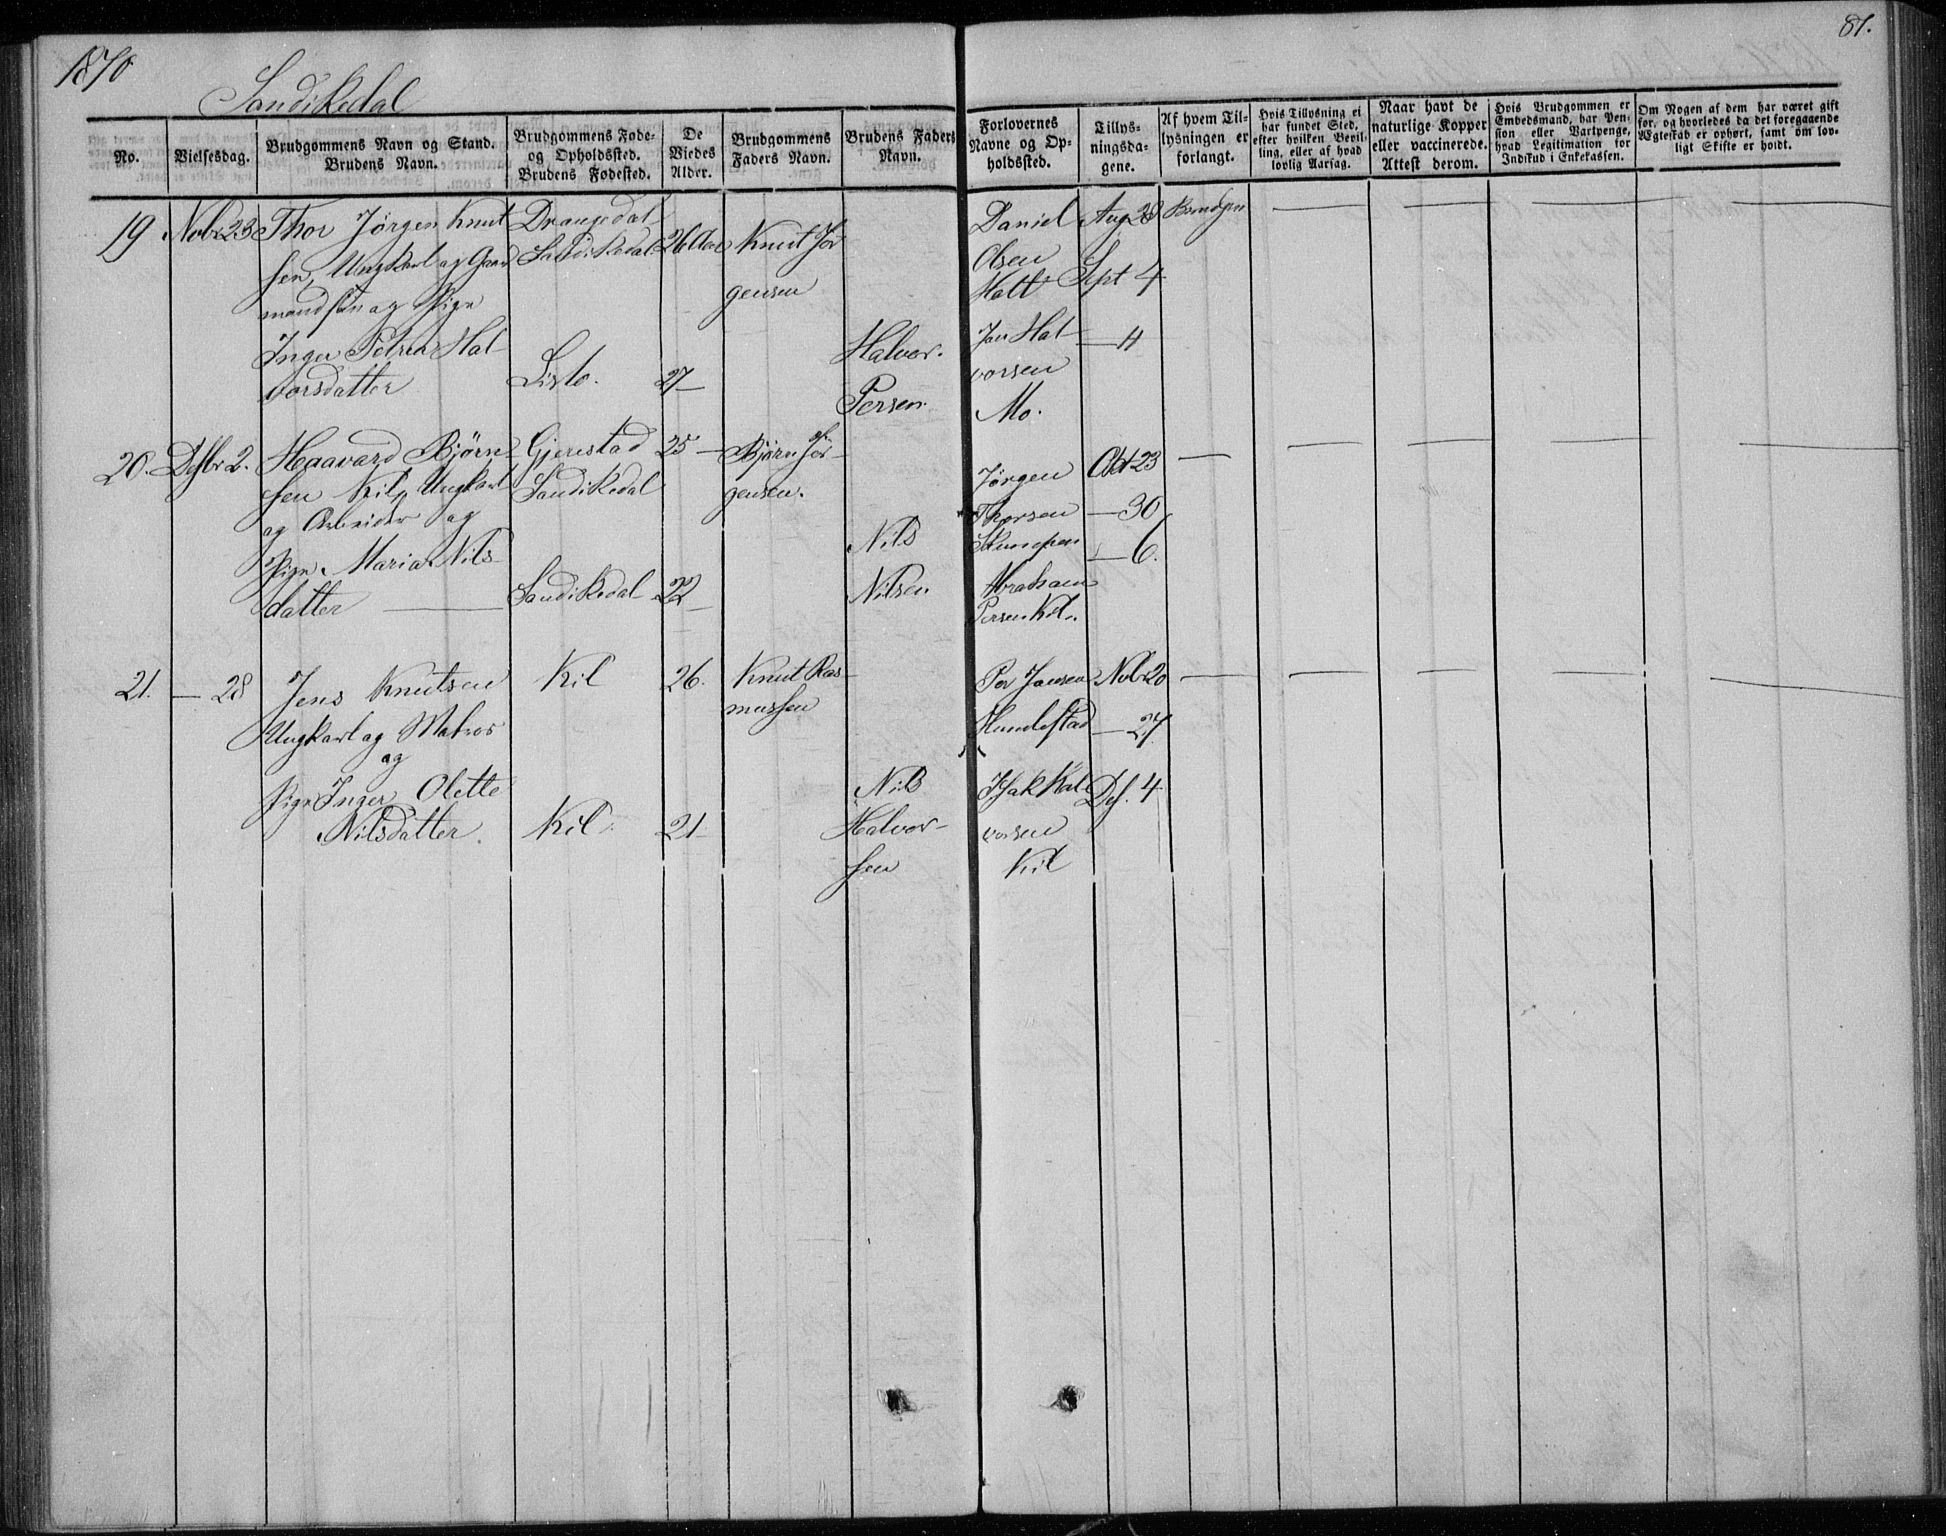 1870
81.
Sandikedal
No.
Vielsesdag.
Brudgommens Navn og Stand.
Brudens Navn.
Brudgommens Føde-
og Opholdssted.
Brudens Fødested.
De
Viedes
Alder.
Brudgommens
Faders Navn.
Brudens Faders
Navn.
Forlovernes
Navne og Op-
holdssted.
Tillys-
ningsda-
gene.
Af hvem Til-
lysningen er
forlangt.
Hvis Tillysning ei
har fundet Sted,
efter hvilken Bevil-
ling, eller af hvad
lovlig Aarsag.
Naar havt de
naturlige Kopper
eller vaccinerede.
Attest derom.
Hvis Brudgommen er
Embedsmand, har Pen-
sion eller Vartpenge,
hvad Legitimation for
Indskud i Enkekassen.
Om Nogen af dem har været gift
før, og hvorledes da det foregaaende
Ægteskab er ophørt, samt om lov-
ligt Skifte er holdt.
19
Nvbr 23
Thor Jørgen Knut
sen, Ungkarl og Gaard
mandsøn og Pige
Inger Petrea Hal-
vorsdatter
Drangedal
Sandikedal
Lislo.
26 Aar
27 —
Knut Jør
gensen
Halvor.
Persen
Daniel
Olsen
Holt
Jan Hal-
vorsen
Mo.
Aug 28
Sept 4
— 11
Brudgm
20.
Desbr 2.
Haavard Bjørn-
sen Kil, Ungkarl
og Arbeider og
Pige Maria Nils-
datter —
Gjerestad
Sandikedal
Sandikedal
25 —
22 —
Bjørn Jør-
gensen.
Nils
Nilsen
Jørgen
Thorsen
Abraham
Persen Kil.
Okt 23
— 30
— 6.
21.
— 28
Jens Knutsen
Ungkarl og Matros
og
Pige Inger Olette
Nilsdatter
Kil
Kil
26.
21 —
Knut Ras-
mussen
Nils
Halvor-
sen
Per Jansen
Humlestad
Isak Hal-
vorsen
Kil
Nvbr 20
— 27
Des. 4